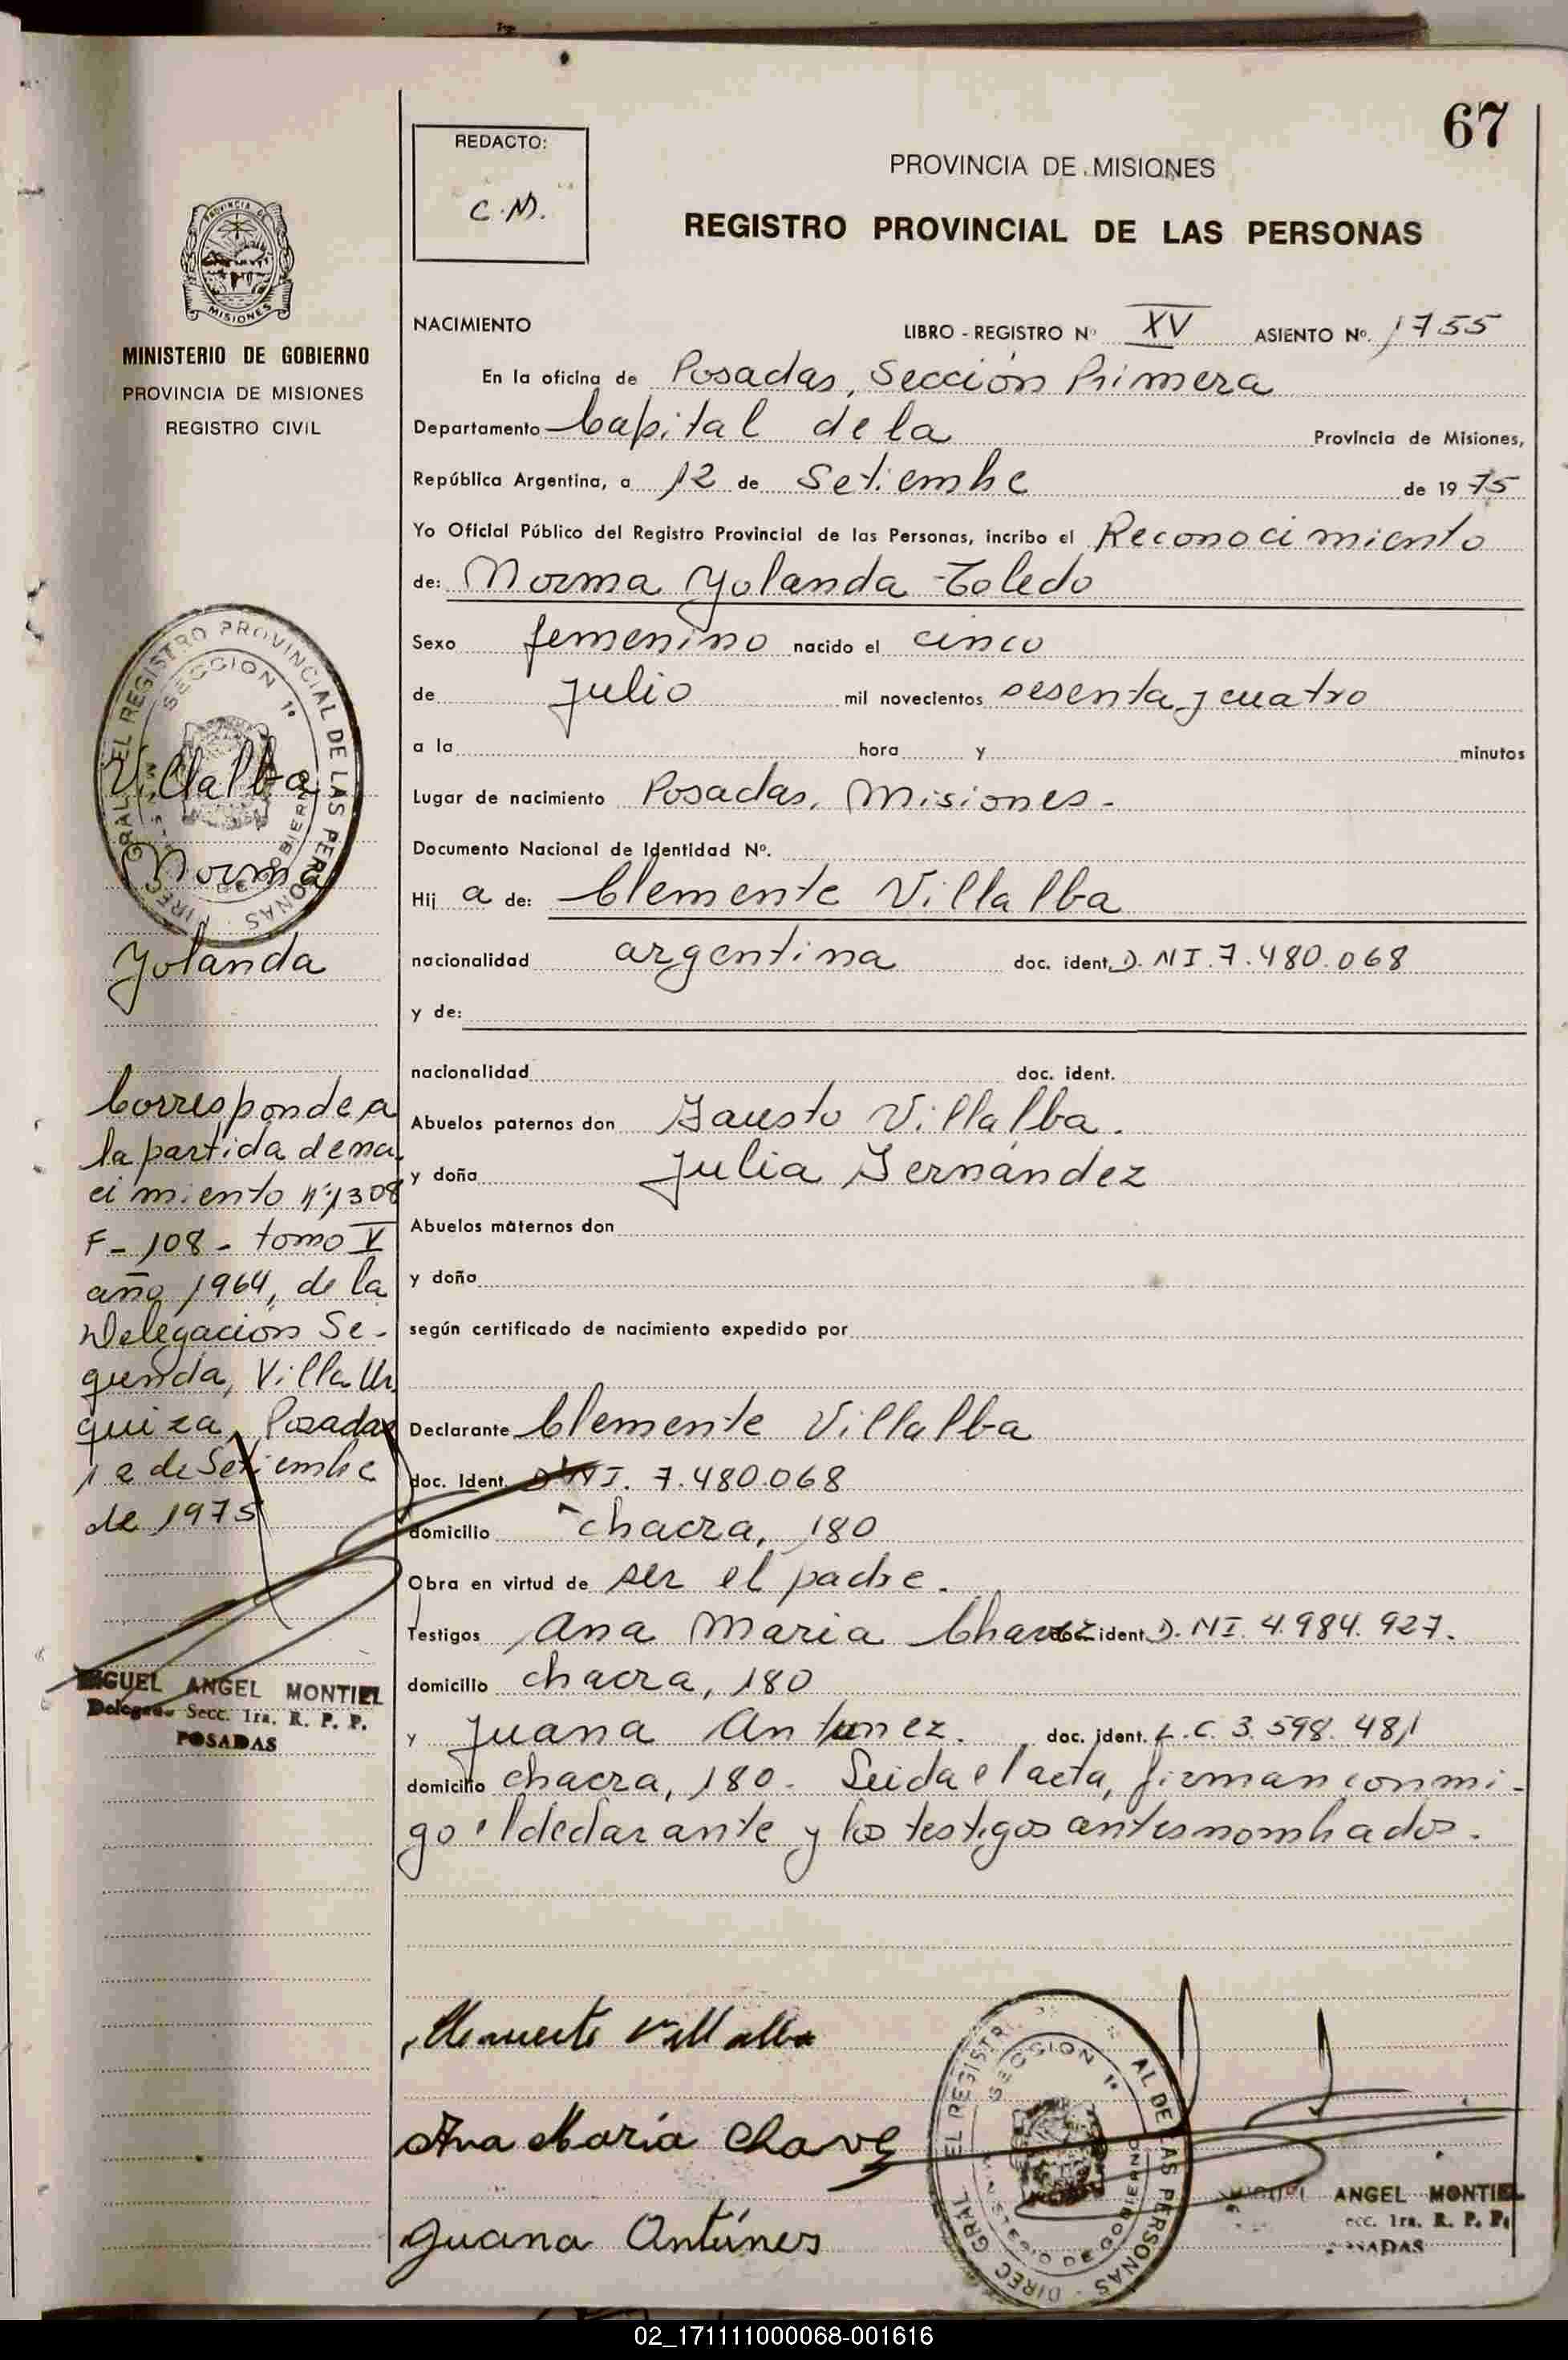 67
REDACTO:
C.M.
PROVINCIA DE MISIONES
REGISTRO PROVINCIAL DE LAS PERSONAS
PROVINCIA DE
MISIONES
MINISTERIO DE GOBIERNO
PROVINCIA DE MISIONES
REGISTRO CIVIL
NACIMIENTO LIBRO - REGISTRO Nº XV ASIENTO Nº. 1755
En la oficina de Posadas, Sección Primera
Departamento Capital de la Provincia de Misiones,
República Argentina, a 12 de Setiembre de 1975
Yo Oficial Público del Registro Provincial de las Personas, incribo el Reconocimiento
de: Norma Yolanda Toledo
Sexo femenino nacido el cinco
de julio mil novecientos sesenta y cuatro
a la hora y minutos
Lugar de nacimiento Posadas, Misiones.-
Documento Nacional de Identidad Nº.
Hij a de: Clemente Villalba
nacionalidad argentina doc. ident. D.NI.7.480.068
y de:
nacionalidad doc. ident.
Abuelos paternos don Fausto Villalba.
y doña Julia Fernández
Abuelos maternos don
y doña
según certificado de nacimiento expedido por
Declarante Clemente Villalba
doc. Ident. D.NI. 7.480.068
domicilio chacra, 180
Obra en virtud de ser el padre.
Testigos Ana Maria Chavez doc. ident. D.NI. 4.984.927.
domicilio chacra, 180
y Juana Antunez. doc. ident. L.C. 3.598.481
domicilio chacra, 180.- Leida el acta, firman conmi-
go el declarante y los testigos antes nombrados.
DIREC. GRAL. DEL REGISTRO PROVINCIAL DE LAS PERSONAS
SECCION 1ª
Villalba
Norma
Yolanda
Corresponde a
la partida de na
cimiento nº 1308
F- 108- tomo V
año 1964, de la
Delegación Se-
gunda, Villa Ur
quiza, Posadas
12 de Setiembre
de 1975
MIGUEL ANGEL MONTIEL
Delegado Secc. 1ra. R. P. P.
POSADAS
Clemente Villalba
Ana María Chavez
Juana Antúnes
DIREC GRAL DEL REGISTR AL DE LAS PERSONAS
SECCION 1ª
MINISTERIO DE GOBIERNO
MIGUEL ANGEL MONTIEL
ecc. 1ra. R. P. P.
POSADAS
02_171111000068-001616